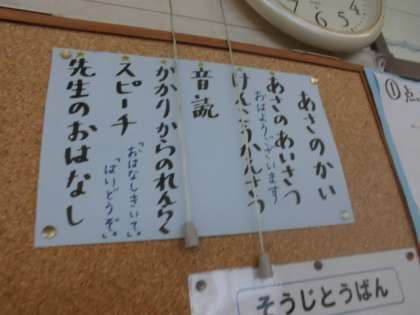 あさのかい
あさのあいさつ
おはようございます
けんこうかんさつ
音読
かかりからのれんらく
スピーチ
「おはなしきいて。」
「はいどうぞ。」
先生のおはなし
そうじとうばん
4
5
6
7